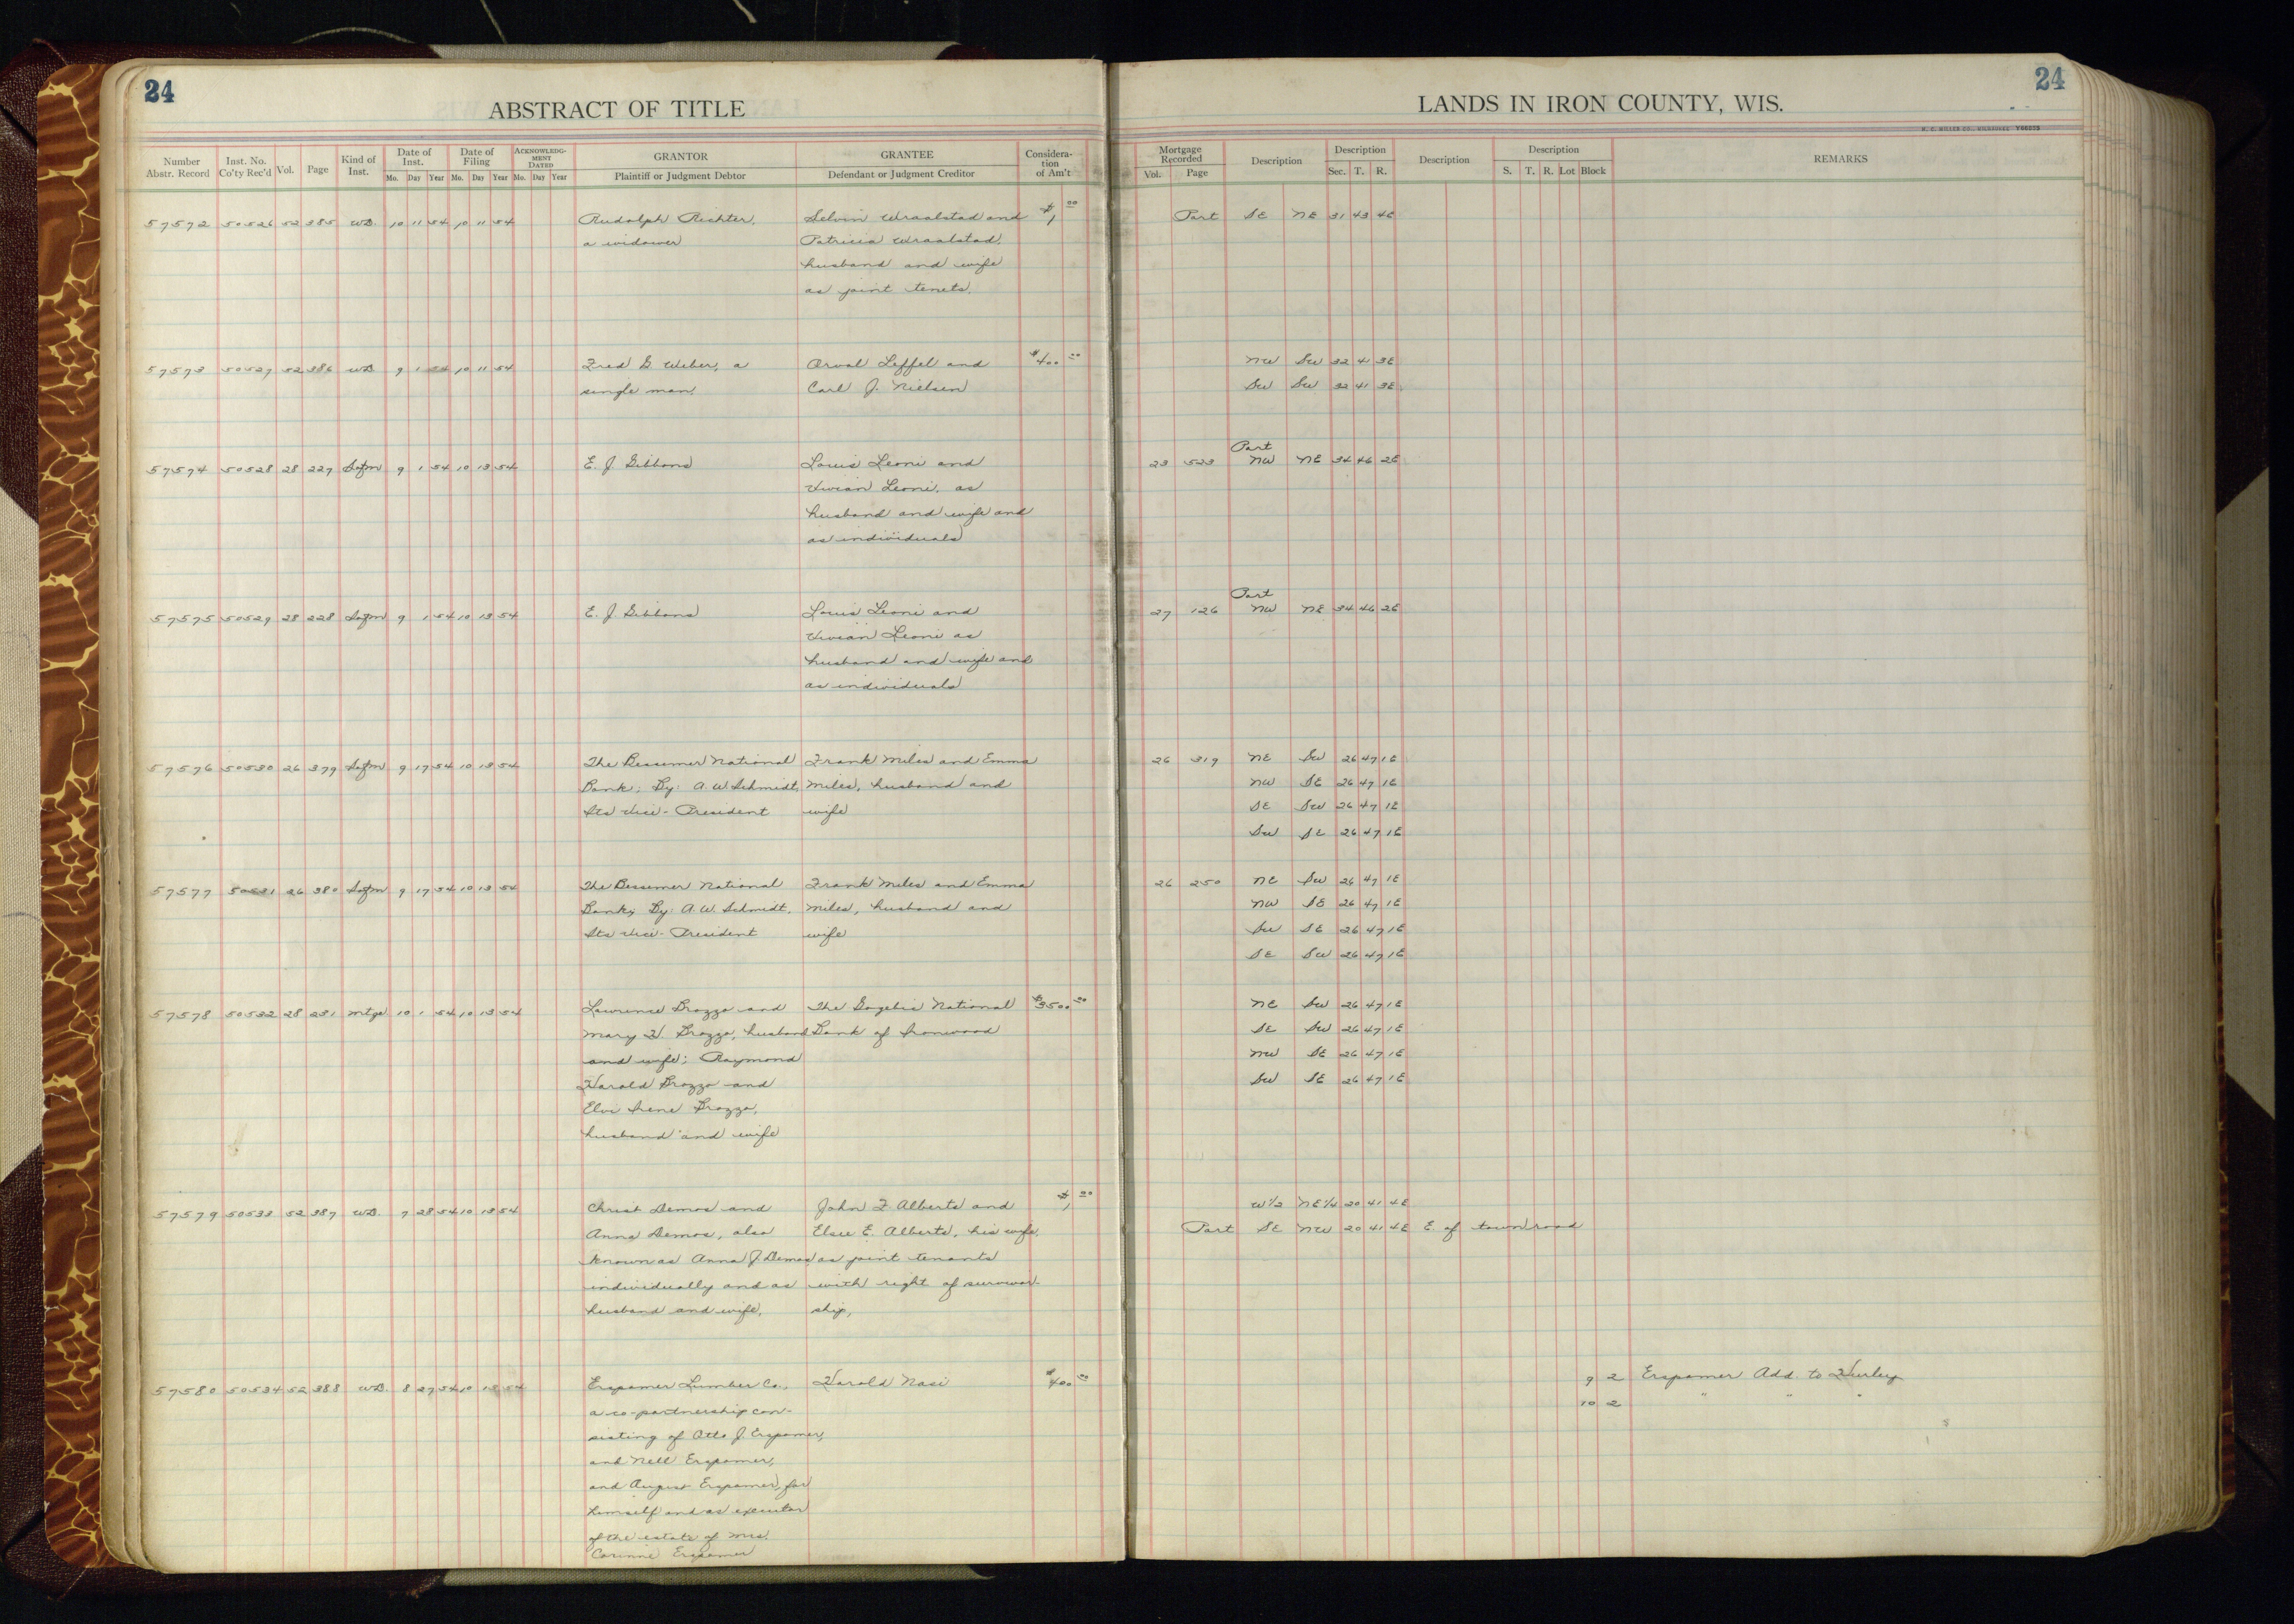 24
24
ABSTRACT OF TITLE
LANDS IN IRON COUNTY, WIS.
Number Abstr. Record Inst. No. Co'ty Rec'd Vol. Page Kind of Inst. Date of Inst. Mo. Day Year Date of Filing Mo. Day Year ACKNOWLEDGMENT DATED Mo. Day Year GRANTOR Plaintiff or Judgment Debtor GRANTEE Defendant or Judgment Creditor Consideration of Am't
Mortgage Recorded Vol. Page Description Description Sec. T. R. Description Description S. T. R. Lot Block REMARKS
57572 50526 52 385 WD. 10 11 54 10 11 54 Rudolph Richter, Selvin Wraalstad and $1 00 Part SE NE 31 43 4E
a widower Patricia Wraalstad,
husband and wife
as joint tenets.
57573 50527 52 386 WD 9 1 54 10 11 54 Fred G Weber, a Orval Leffel and $400 00 NW SW 32 41 3E
single man. Carl J. Nielsen SW SW 32 41 3E
Part
57574 50528 28 227 Satfm 9 1 54 10 13 54 E. J. Gibbons Louis Leoni and 23 523 NW NE 34 46 2E
Vivian Leoni, as
husband and wife and
as individuals
Part
57575 50529 28 228 Satfm 9 1 54 10 13 54 E. J. Gibbons Louis Leoni and 27 126 NW NE 34 46 2E
Vivian Leoni as
husband and wife and
as individuals
57576 50530 26 379 Satfm 9 17 54 10 13 54 The Bessemer National Frank Miles and Emma 26 319 NE SW 26 47 1E
Bank; By: A. W. Schmidt, Miles, husband and NW SE 26 47 1E
Its Vice-President wife SE SW 26 47 1E
SW SE 26 47 1E
57577 50531 26 380 Satfm 9 17 54 10 13 54 The Bessemer National Frank Miles and Emma 26 250 NE SW 26 47 1E
Bank; By: A. W. Schmidt, Miles, husband and NW SE 26 47 1E
Its Vice-President wife SW SE 26 47 1E
SE SW 26 47 1E
57578 50532 28 231 Mtge 10 1 54 10 13 54 Lawrence Brozzo and The Gogebic National $3500 00 NE SW 26 47 1E
Mary H. Brozzo, husband Bank of Ironwood SE SW 26 47 1E
and wife; Raymond NW SE 26 47 1E
Harold Brozzo and SW SE 26 47 1E
Elvi Irene Brozzo,
husband and wife
57579 50533 52 387 WD. 7 28 54 10 13 54 Christ Demos and John F Alberts and $1 00 W 1/2 NE 1/4 20 41 4E
Anna Demos, also Elsie E. Alberts, his wife, Part SE NW 20 41 4E E. of town road
known as Anna J Demos as joint tenants
individually and as with right of survivor-
husband and wife, ship,
57580 50534 52 388 WD. 8 27 54 10 13 54 Erspamer Lumber Co., Harold Nasi $400 00 9 2 Erspamer Add. to Hurley
a co-partnership con- 10 2 " " "
sisting of Otto J. Erspamer,
and Nell Erspamer,
and August Erspamer, for
himself and as executor
of the estate of Mrs.
Corinne Erspamer